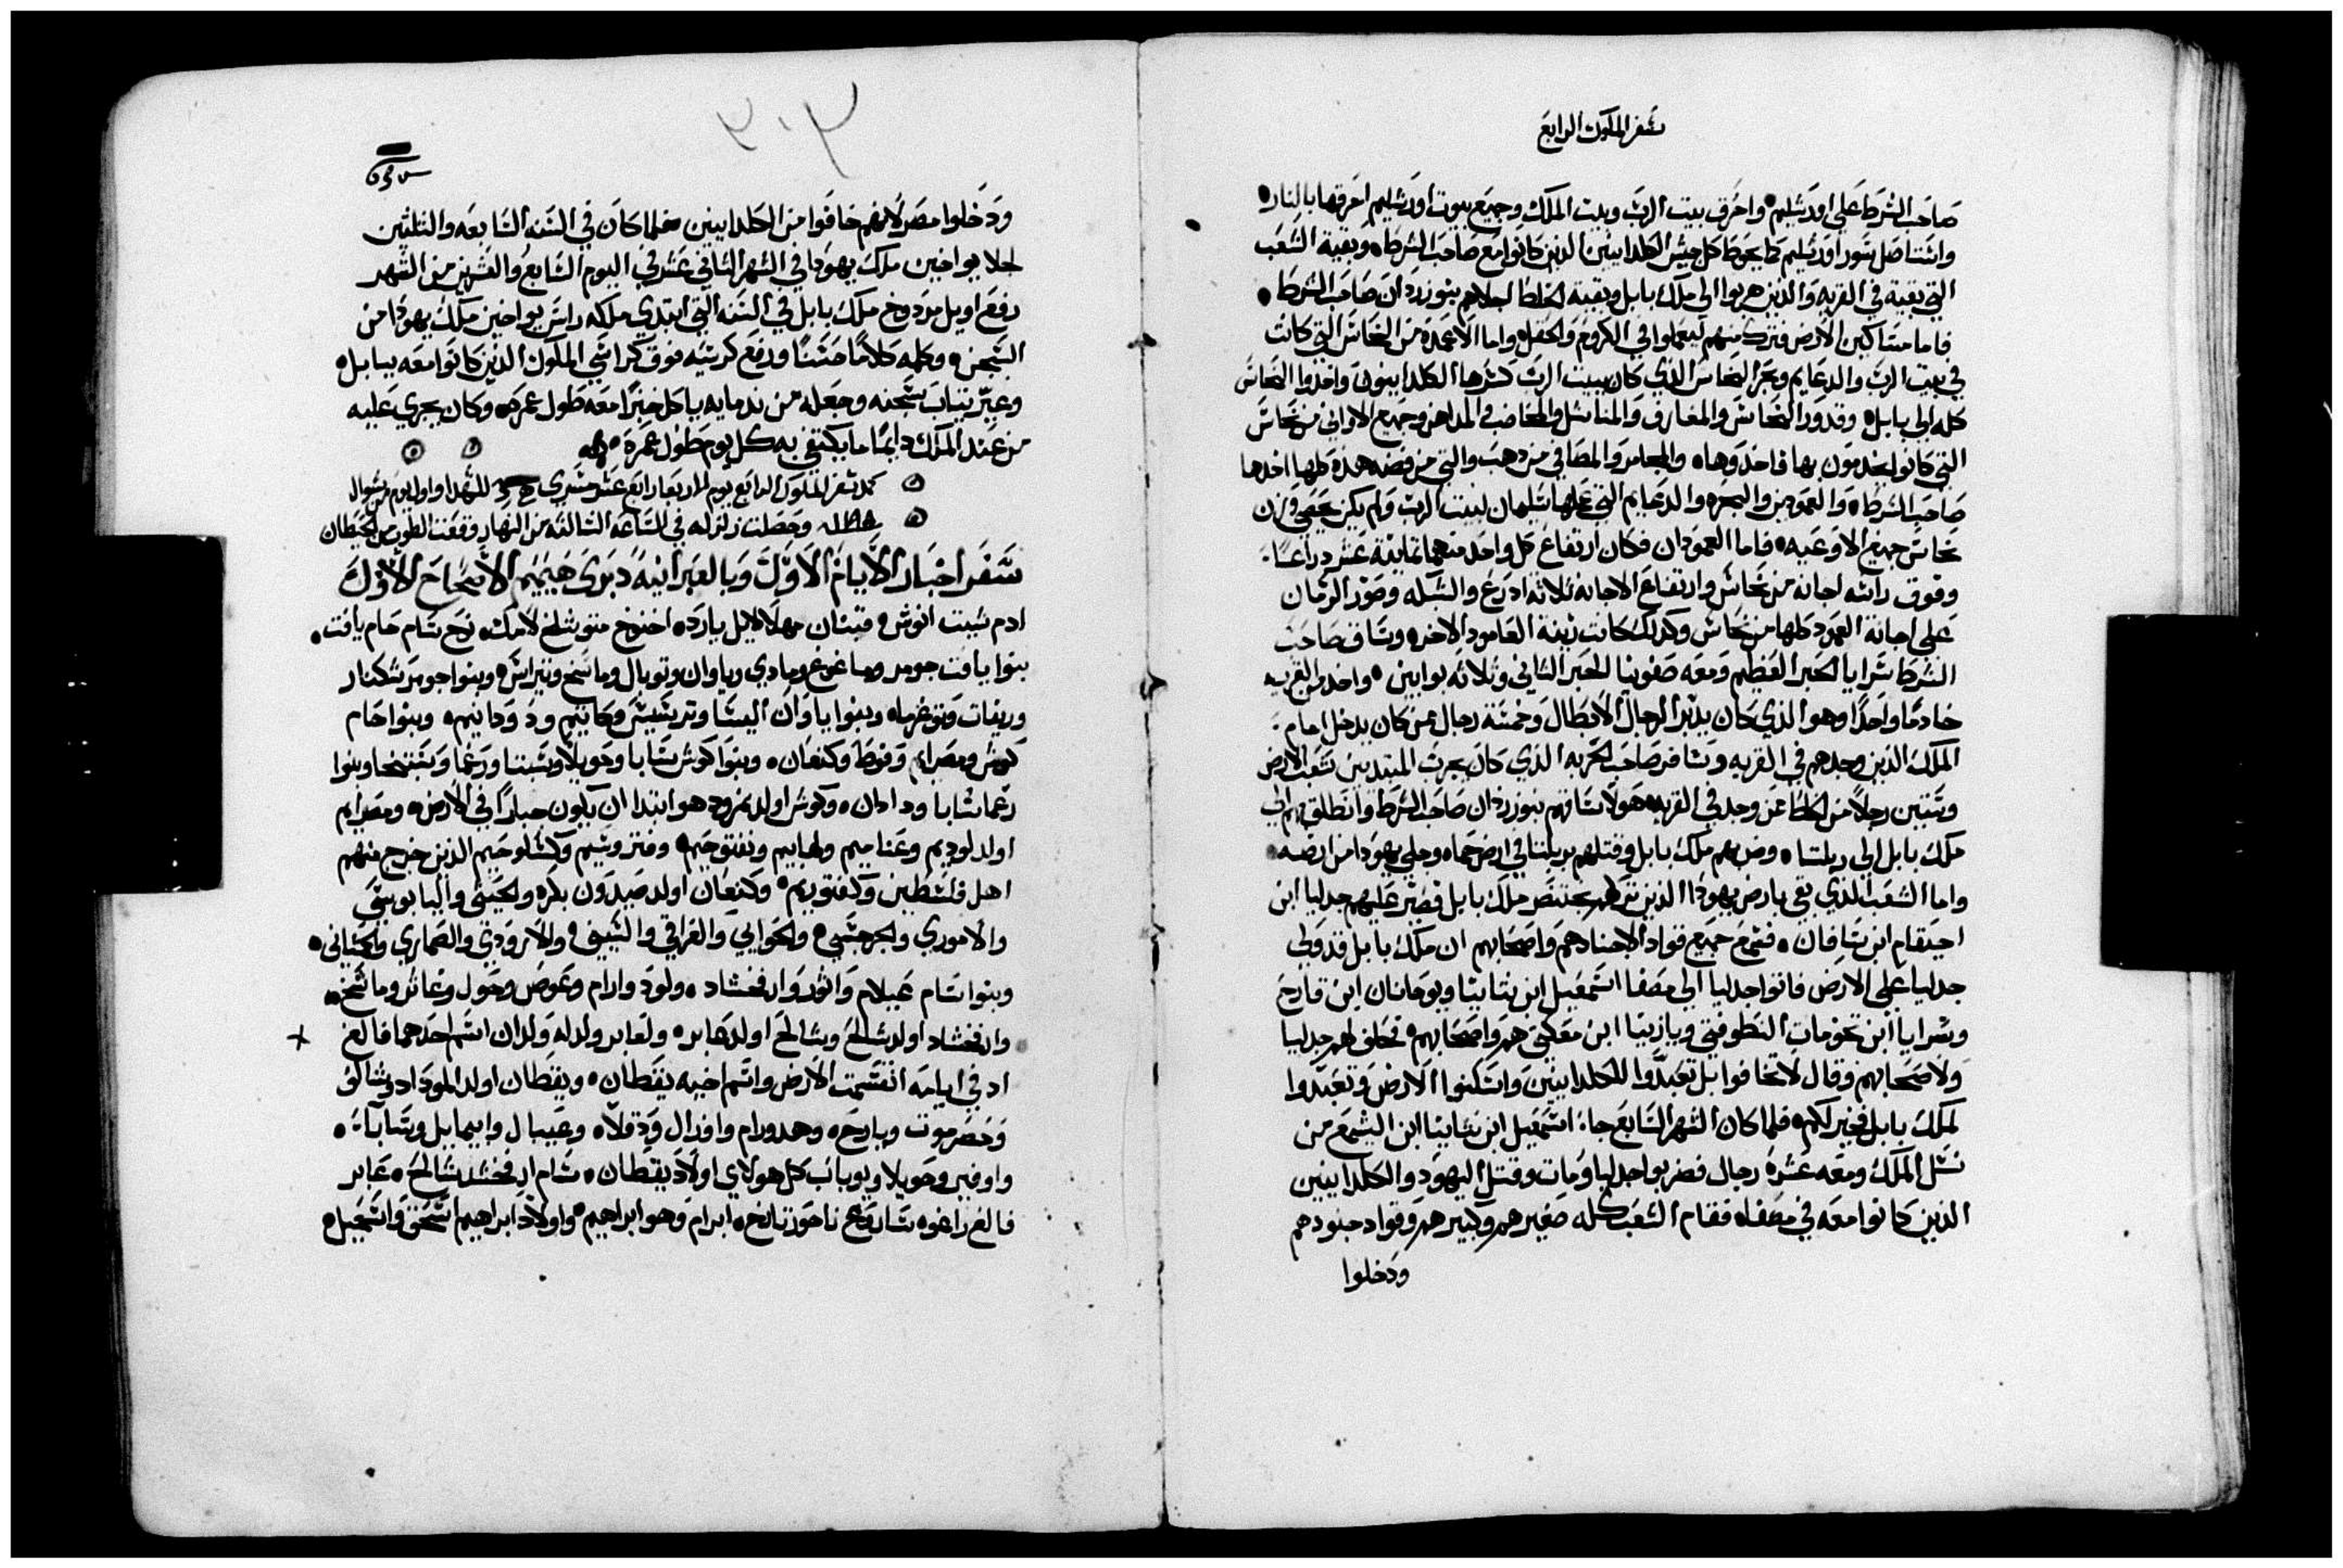 سفر الملوك الرابع
صَاحَب الشرَط عَلي اورَشليم واحَرق بيت الربّ وبيت الملك وجميَع بيوت اورَشليم احَرقها بالنار
واستاصَل سَور اورَشليم كما يحَوط كل جيش الكلدانيين الذين كانوا مَع صَاحَب الشرطه وبقية الشعَب
التي بقية في القريه وَالذين هربوا الي ملك بابل وبقية الخلط اجلاهم بنوزردَان صَاحَب الشرَط
فاما مسَاكين الارض فترك منهم ليعَملوا في الكروم وَالحَقل واما الاعَمدَه من النحَاسَ التي كانت
في بيت الربّ والدعَايم وبحَر النحَاس الذي كان ببيت الربّ كسَرها الكلدانيون واخذوا النحَاسَ
كله الي بابل وقدور النحَاسَ والمغارف والمناشل والمخاضب والمداهن وجميَع الاواني من نحَاسَ
التي كانوا يخدمون بها فاخذوَها والمجامر والمصَافي من ذهبَ والتي من فضه هذه كلها اخذها
صَاحَب الشرطه وَالعَمودين والبحَره والدعَايم التي عَملها سَليمان لبيت الربّ وَلم يكن يحَصَي وَزن
نحَاسَ جميَع الاوعَيه فاما العَمودَان فكان ارتفاعَ كل واحَد منهما ثمانية عَشر ذراعًا
وفوق راسَه اجانه من نحَاسَ وارتفاعَ الاجانه ثلاثة ادرَعَ والسبَله وصَوَر الرمان
عَلي اجانة العَمود كلها من نحَاسَ وكدلك كانت زينة العَامود الاخر وسَاق صَاحَب
الشرَط سَرايا الحَبر العَظيم ومَعه صَفونيا الحَبر الثاني وثلاثه بوابين واخد من القريه
خادمًا واحَدًا وهو الذي كان يدبّر الرجال الابطال وخمسَة رجال ممن كان يدخل امام
الملك الذين وجدهم في القريه وسَافر صَاحَب الحَربه الذي كان يجرب المبتديين شعَب الارض
وسَتين رجلاً من الخلط ممن وجد في القريه هولا سَاقهم بنوزردان صَاحَب الشرط وانطلق بهم الي
ملك بابل الي ربلتا وضربهم ملك بابل وقتلهم بربلتا في ارض حَماه وجلي يهودا من ارضه
واما الشعَب الذي بقي بارض يهودَا الذين تركهم بختنصَر ملك بابل فصَيّر عَليهم جدليا ابن
احيَقام ابن سَافان فسَمعَ جميعَ قواد الاجناد هم وَاصَحَابهم ان ملك بابل قد وَلي
جدليا عَلي الارض فاتوا جدليا الي مصَفا اسَمعَيل ابن نثانيا ويوحَانان ابن قارحَ
وسَرايا ابن تنحَومات النطوفتي ويازنيا ابن معَكتي هم وَاصَحَابهم فحَلف لهم جدليا
وَلاصَحَابهم وقال لاتخافوا بل تعَبدَّوا للكلدانيين وَاسَكنوا الارض وتعَبدّوا
لملك بابل فخير لكم فلما كان الشهر السَابعَ جاء اسَمعَيل ابن نثانيا ابن اليشمعَ من
نسَل الملك ومعَه عَشره رجال فضربوا جدليا ومات وقتل اليهود والكلدانيين
الذين كانوا معَه في مصَفاه فقام الشعَب كله صَغيرهم وَكبيرهم وقواد جنودهم
ودَخلوا
٣٠٣
ودَخلوا مصَر لانهم خَافوا من الكلدانيين فلما كانَ في السَنه السَابعَه والثلثين
لجلا يواخين ملك يهودا في الشهر الثاني عَشر في اليوم السَابع وَالعَشرين من الشهر
رفعَ اويل مردوخ ملك بابل في السَنه التي ابتدي ملكه راسَ يواخين ملك يهودَا من
السَجن وكلمه كلامًا حَسَنًا ورفع كرسَيه فوق كراسَي الملوك الذين كانوا معَه ببابل
وغيرّ ثياب سَجنه وجعَله من ندمايه ياكل خبزًا معَه طَول عَمره وكان يجري عَليه
من عَند الملك دايمًا ما يكتفي به كل يوم طَول عَمره
كمل سَفر الملوك الرابعَ يوم الاربعَا رابعَ عَشر تشري للشهدا واول يوم من شوال
وحَصَلت زلزله في السَاعَه الثالثه من النهار وقعَت الطور من الحَيطان
سَفر اخبار الايام الاوّل وبالعَبرانيه دَبرَي هَيميَم الاصَحَاح الاوّل
ادم شيت انوش قينان مهلالايل يارد اخنوخ متوشلخ لامك نوح سَام حَام يافت
بنوا يافت جومر وماغوغ ومادي وياوان وتوبال وماشخ وتيراسَ وبنوا جومر شكناز
وريفات وتوغرما وبنوا ياوَان اليشَا وترشيش وكاتيم ودودانيم وبنوا حَام
كوش ومصَرايم وفوط وكنعَان وبنوا كوش سَابا وحَويلا وسَبتا ورَعَما وسَبتخا وبنوا
رعَما شابا ودادان وكوش اولد نمرود هو ابتدا ان يكون جبارًا في الارض ومصَرايم
اولد لوديم وعَناميم ولهابيم ونفتوحَيم وفتروسَيم وكسَلوحَيم الذين خرج منهم
اهل فلسَطين وكفتوريم وكنعَان اولد صَيدَون بكره والحَيثي واليابوسَي
والاموري والجرجسَي والحَوايي والعَراقي والسَيني والاروَدي والصَماري والحَماثي
وبنوا سَام عَيلام وَاثور وَارفخشاد ولود وارام وعَوص وحَول وعَاثر وماشخ
وارفخشاد اولد شالحَ وشالحَ اولد عَابر ولعَابر ولد له وَلدان اسَم احَدهما فالغ
اد في ايامه انقسَمت الارض واسَم اخيه يقطان ويقطان اولد الموداد وشالف
وحَضرموت ويارحَ وهدورام وافزال ودَقلا وعَيبال وابيمايل وسَابا
واوفير وحَويلا ويوباب كل هولاي اولاد يقطان سَام ارفخشد شالحَ عَابر
فالغ راغو سَاروع ناحَور تارح ابرام وهو ابراهيم واولاد ابراهيم اسَحَق وَاسَمعَيل